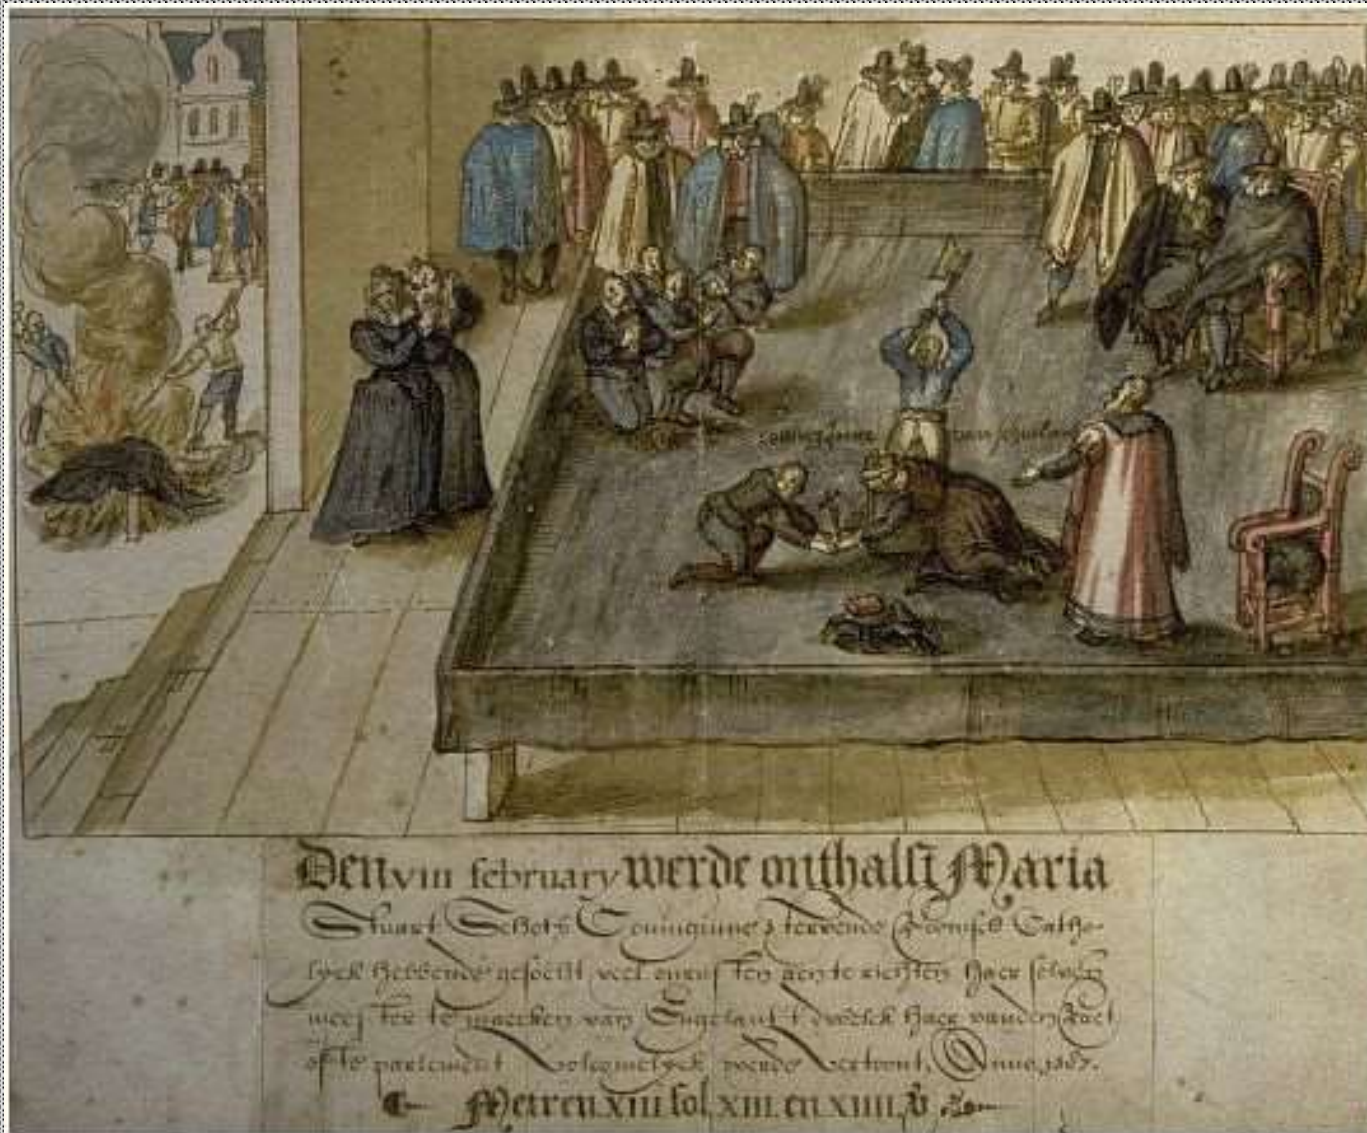 Coninginne van Schotlan
Den viii february werde onthalst Maria
Stuart Schots Coninginne stervende Roomsch Catho-
lyck hebbende gesocht veel onrusten aen te richten haer selven
meester te maecken van Engelant t welck haer vanden Raet
ofte parlement werde vertoont, Anno, 1587.
Metren XIII fol XIII en XIIII